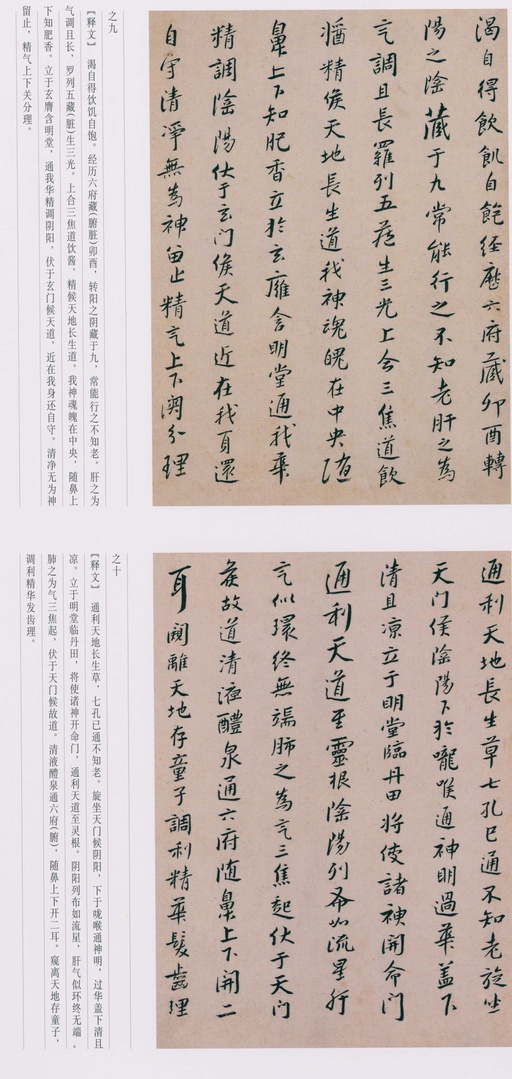 渴自得飲飢自飽經歷六府藏卯酉轉
陽之陰藏于九常能行之不知老肝之為
气調且長羅列五藏生三光上合三焦道飲
醬精候天地長生道我神魂魄在中央随
鼻上下知肥香立於玄膺含明堂通我華
精調陰陽伏于玄門候天道近在我身還
自守清淨無為神留止精气上下關分理
之九
【释文】 渴自得饮饥自饱。经历六府藏(腑脏)卯酉，转阳之阴藏于九，常能行之不知老。肝之为
气调且长，罗列五藏(脏)生三光。上合三焦道饮酱，精候天地长生道。我神魂魄在中央，随鼻上
下知肥香。立于玄膺含明堂，通我华精调阴阳。伏于玄门候天道，近在我身还自守。清净无为神
留止，精气上下关分理。
通利天地長生草七孔已通不知老旋坐
天門侯陰陽下於嚨喉通神明過華蓋下
清且凉立于明堂臨丹田將使諸神開命門
通利天道至靈根陰陽列布如流星肝
气似環終無端肺之為气三焦起伏于天門
候故道清液醴泉通六府随鼻上下開二
耳闚離天地存童子調利精華髮齒理
之十
【释文】 通利天地长生草，七孔已通不知老。旋坐天门候阴阳，下于咙喉通神明，过华盖下清且
凉。立于明堂临丹田，将使诸神开命门，通利天道至灵根。阴阳列布如流星，肝气似环终无端。
肺之为气三焦起，伏于天门候故道。清液醴泉通六府(腑)，随鼻上下开二耳。窥离天地存童子，
调利精华发齿理。